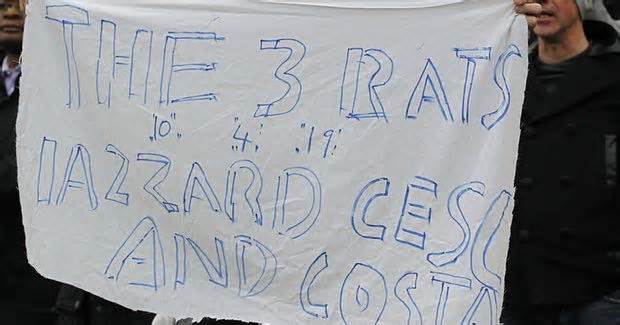 THE 3 RATS
"10" "4" "19"
HAZZARD CESC
AND COSTA